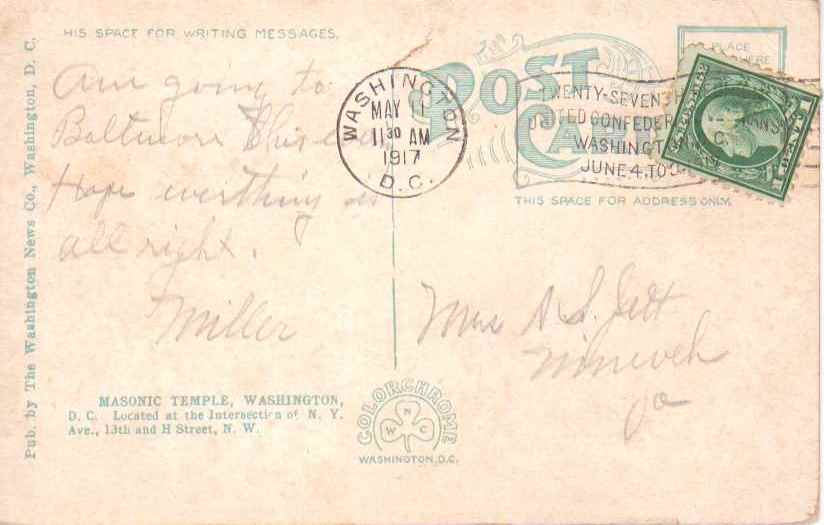 HIS SPACE FOR WRITING MESSAGES.
Pub. by The Washington News Co., Washington, D. C.
Am going to
Baltimore this
Hope everthing is
all right.
Miller
MASONIC TEMPLE, WASHINGTON,
D. C. Located at the Intersection of N. Y.
Ave., 13th and H Street, N. W.
COLORCHROME
N
W C
WASHINGTON, D.C.
POST
CARD
WASHINGTON
MAY 11
11 30 AM
1917
D.C.
ENTY-SEVEN
ITED CONFEDER
WASHINGT
JUNE 4, TO
PLACE
HERE
THIS SPACE FOR ADDRESS ONLY.
Mrs A S Jett
Nineveh
Va